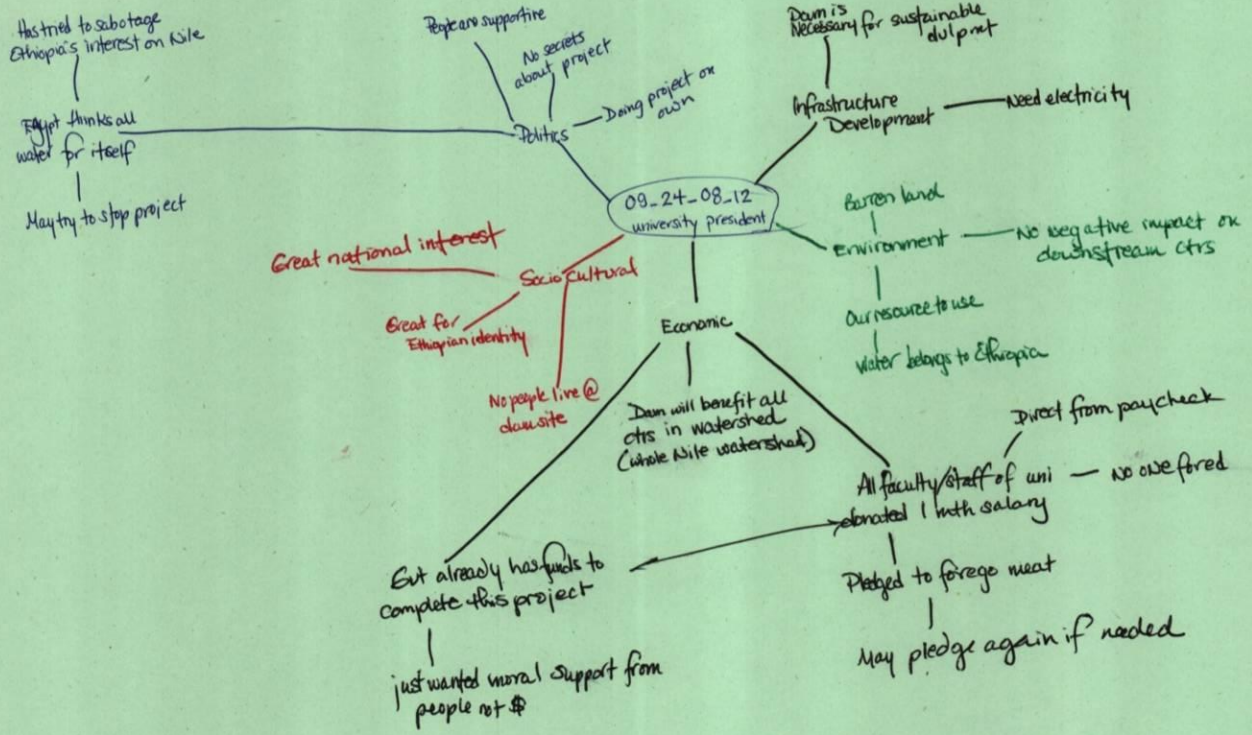 Has tried to sabotage
Ethiopia's interest on Nile
Egypt thinks all
water for itself
May try to stop project
People are supportive
No secrets
about project
Doing project on
own
Politics
Dam is
Necessary for sustainable
dvlpmt
Infrastructure
Development
Need electricity
09-24-08-12
university president
Barren land
environment
No negative impact on
downstream ctrs
Our resource to use
water belongs to Ethiopia
Great national interest
Socio Cultural
Great for
Ethiopian identity
No people live @
dam site
Economic
Dam will benefit all
ctrs in watershed
(whole Nile watershed)
Direct from paycheck
All faculty/staff of uni
donated 1 mth salary
No one forced
Pledged to forego meat
May pledge again if needed
Gvt already has funds to
complete this project
just wanted moral support from
people not $